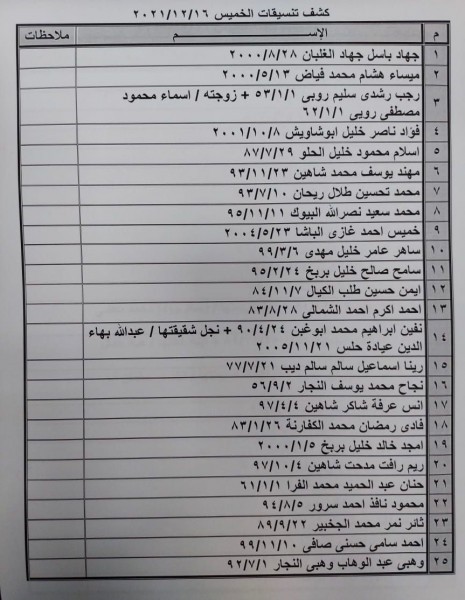 كشف تنسيقات الخميس ٢٠٢١/١٢/١٦
م الاســـــم ملاحظات
١ جهاد باسل جهاد الغلبان ٢٠٠٠/٨/٢٨
٢ ميساء هشام محمد فياض ٢٠٠٠/٥/١٣
٣ رجب رشدى سليم روبى ٥٣/١/١ + زوجته / اسماء محمود
مصطفى روبى ٦٢/١/١
٤ فؤاد ناصر خليل ابوشاويش ٢٠٠١/١٠/٨
٥ اسلام محمود خليل الحلو ٨٧/٧/٢٩
٦ مهند يوسف محمد شاهين ٩٣/١١/٢٣
٧ محمد تحسين طلال ريحان ٩٣/٧/١٠
٨ محمد سعيد نصرالله البيوك ٩٥/١١/١١
٩ خميس احمد غازى الباشا ٢٠٠٤/٥/٢٣
١٠ ساهر عامر خليل مهدى ٩٩/٣/٦
١١ سامح صالح خليل بربخ ٩٥/٢/٢٤
١٢ ايمن حسين طلب الكيال ٨٤/١١/٧
١٣ احمد اكرم احمد الشمالى ٨٣/٨/٢٨
١٤ نفين ابراهيم محمد ابوغبن ٩٠/٤/٢٤ + نجل شقيقتها / عبدالله بهاء
الدين عيادة حلس ٢٠٠٥/١١/٢١
١٥ رينا اسماعيل سالم سالم ديب ٧٧/٧/٢١
١٦ نجاح محمد يوسف النجار ٥٦/٩/٢
١٧ انس عرفة شاكر شاهين ٩٧/٤/٤
١٨ فادى رمضان محمد الكفارنة ٨٣/١/٢٦
١٩ امجد خالد خليل بربخ ٢٠٠٠/١/٥
٢٠ ريم رافت مدحت شاهين ٩٧/١٠/٤
٢١ حنان عبد الحميد محمد الفرا ٦١/١/١
٢٢ محمود نافذ احمد سرور ٩٤/٨/٥
٢٣ ثائر نمر محمد الجخبير ٨٩/٩/٢٢
٢٤ احمد سامى حسنى صافى ٩٩/١١/١٠
٢٥ وهبى عبد الوهاب وهبى النجار ٩٢/٧/١